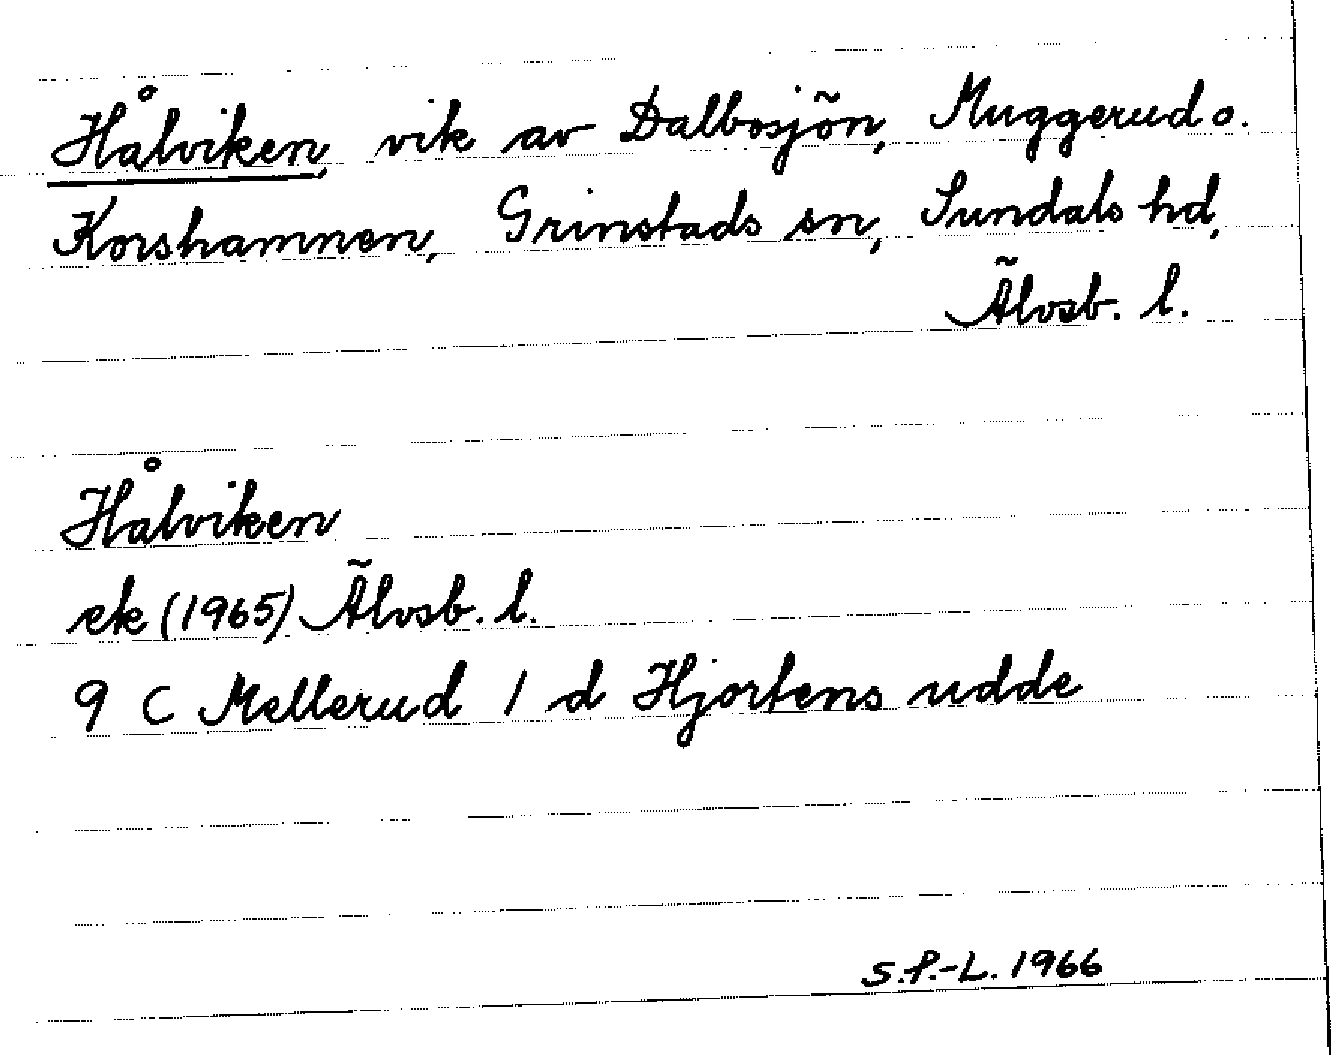 Hålviken, vik av Dalbosjön, Muggerud o.
Korshamnen, Grinstads sn, Sundals hd,
Älvsb. l.
Hålviken
ek (1965) Älvsb. l.
9 C Mellerud 1 d Hjortens udde
S.P.-L. 1966